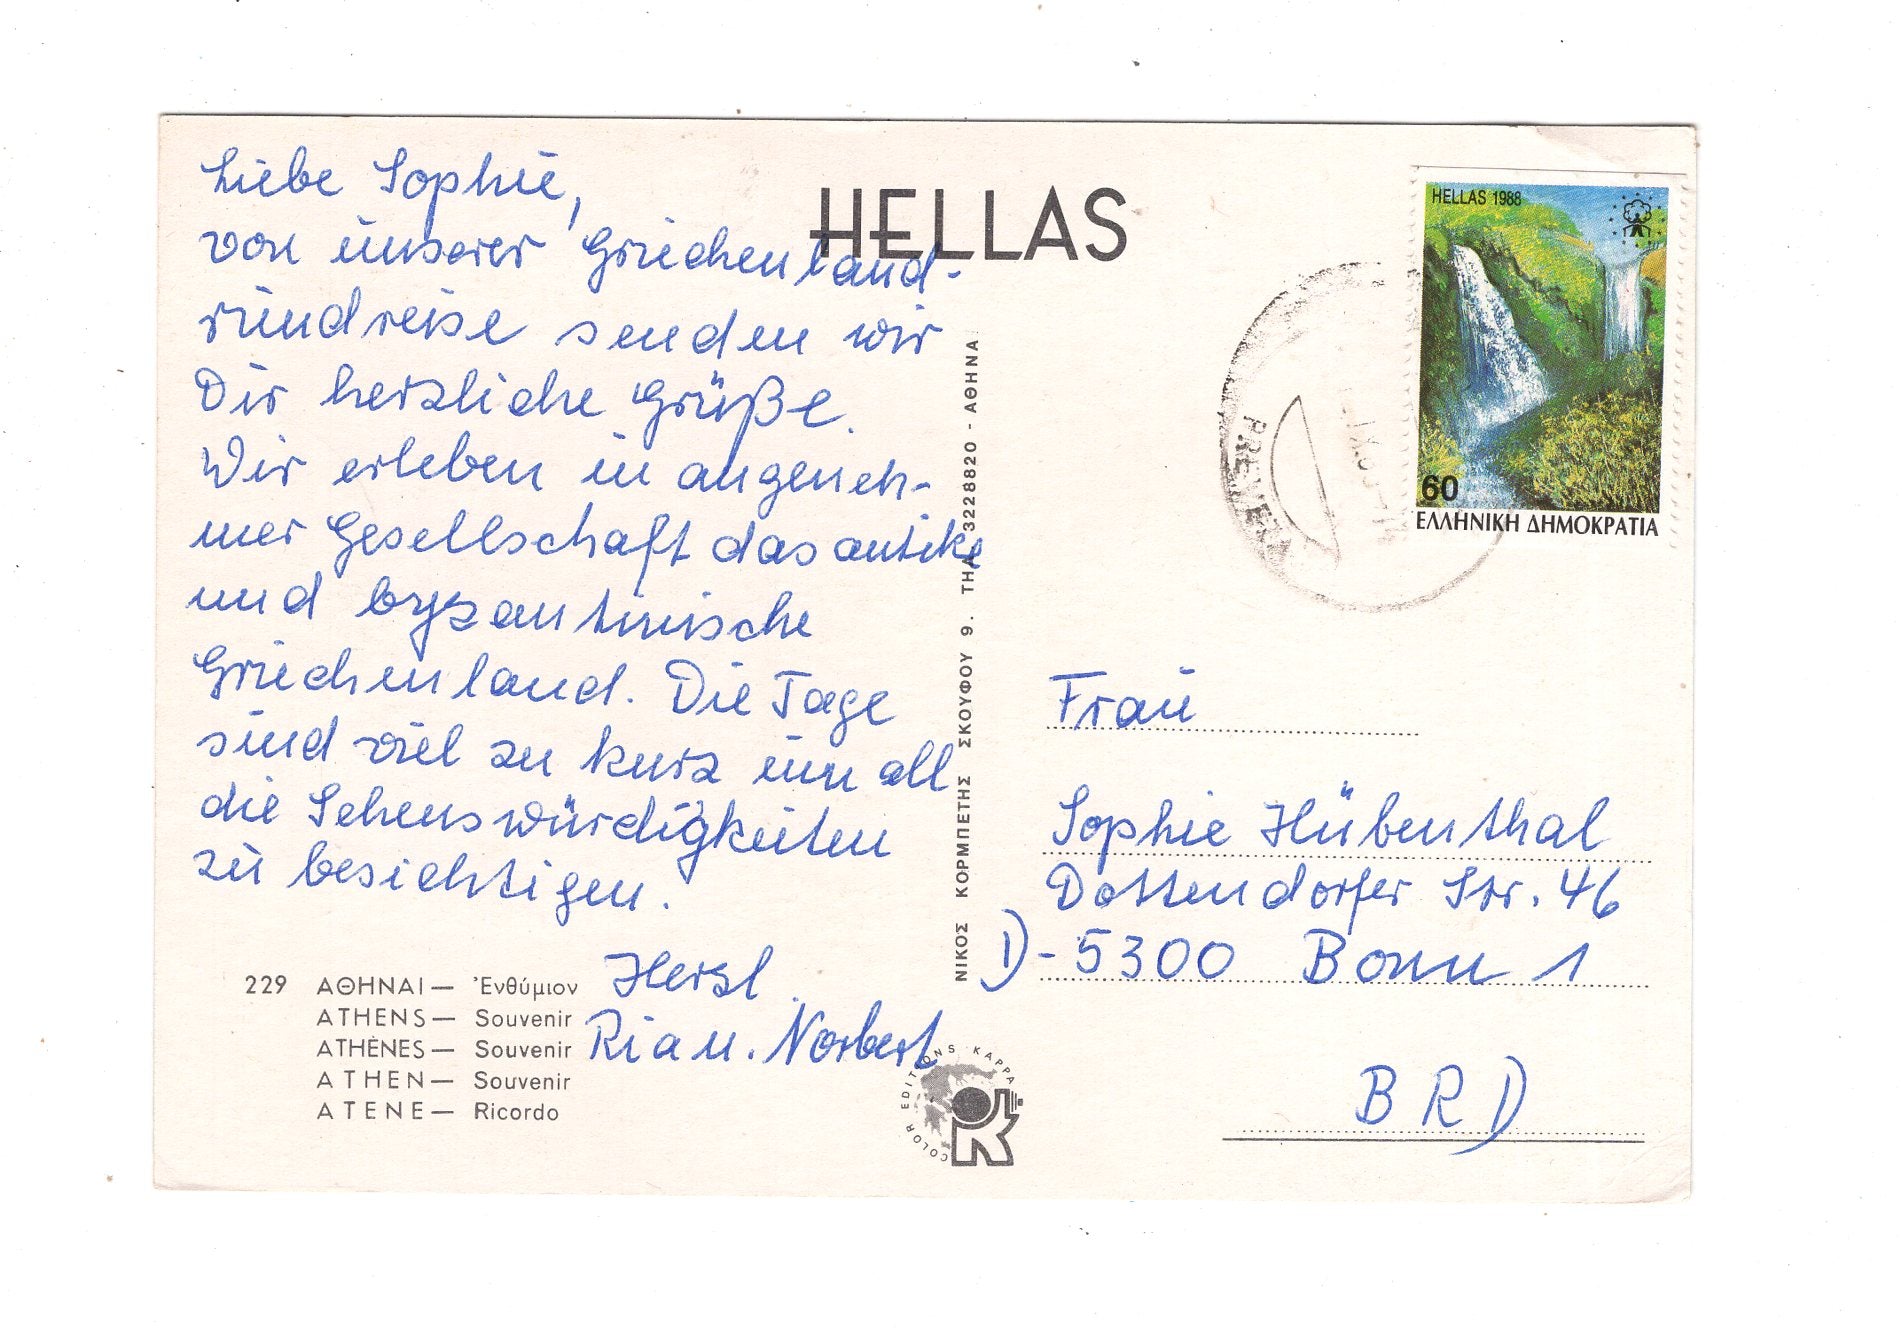 Liebe Sophie,
von unserer Griechenland-
rundreise senden wir
Dir herzliche Grüße.
Wir erleben in angeneh-
mer Gesellschaft das antike
und byzantinische
Griechenland. Die Tage
sind viel zu kurz um all
die Sehenswürdigkeiten
zu besichtigen.
Herzl.
Ria u. Norbert
229 ΑΘΗΝΑΙ — Ἐνθύμιον
ATHENS — Souvenir
ATHÈNES — Souvenir
ATHEN — Souvenir
ATENE — Ricordo
HELLAS
ΝΙΚΟΣ ΚΟΡΜΠΕΤΗΣ ΣΚΟΥΦΟΥ 9. ΤΗΛ. 3228820 - ΑΘΗΝΑ
COLOR EDITIONS KAPPA
K
HELLAS 1988
60
ΕΛΛΗΝΙΚΗ ΔΗΜΟΚΡΑΤΙΑ
Frau
Sophie Hübenthal
Dottendorfer Str. 46
D-5300 Bonn 1
BRD